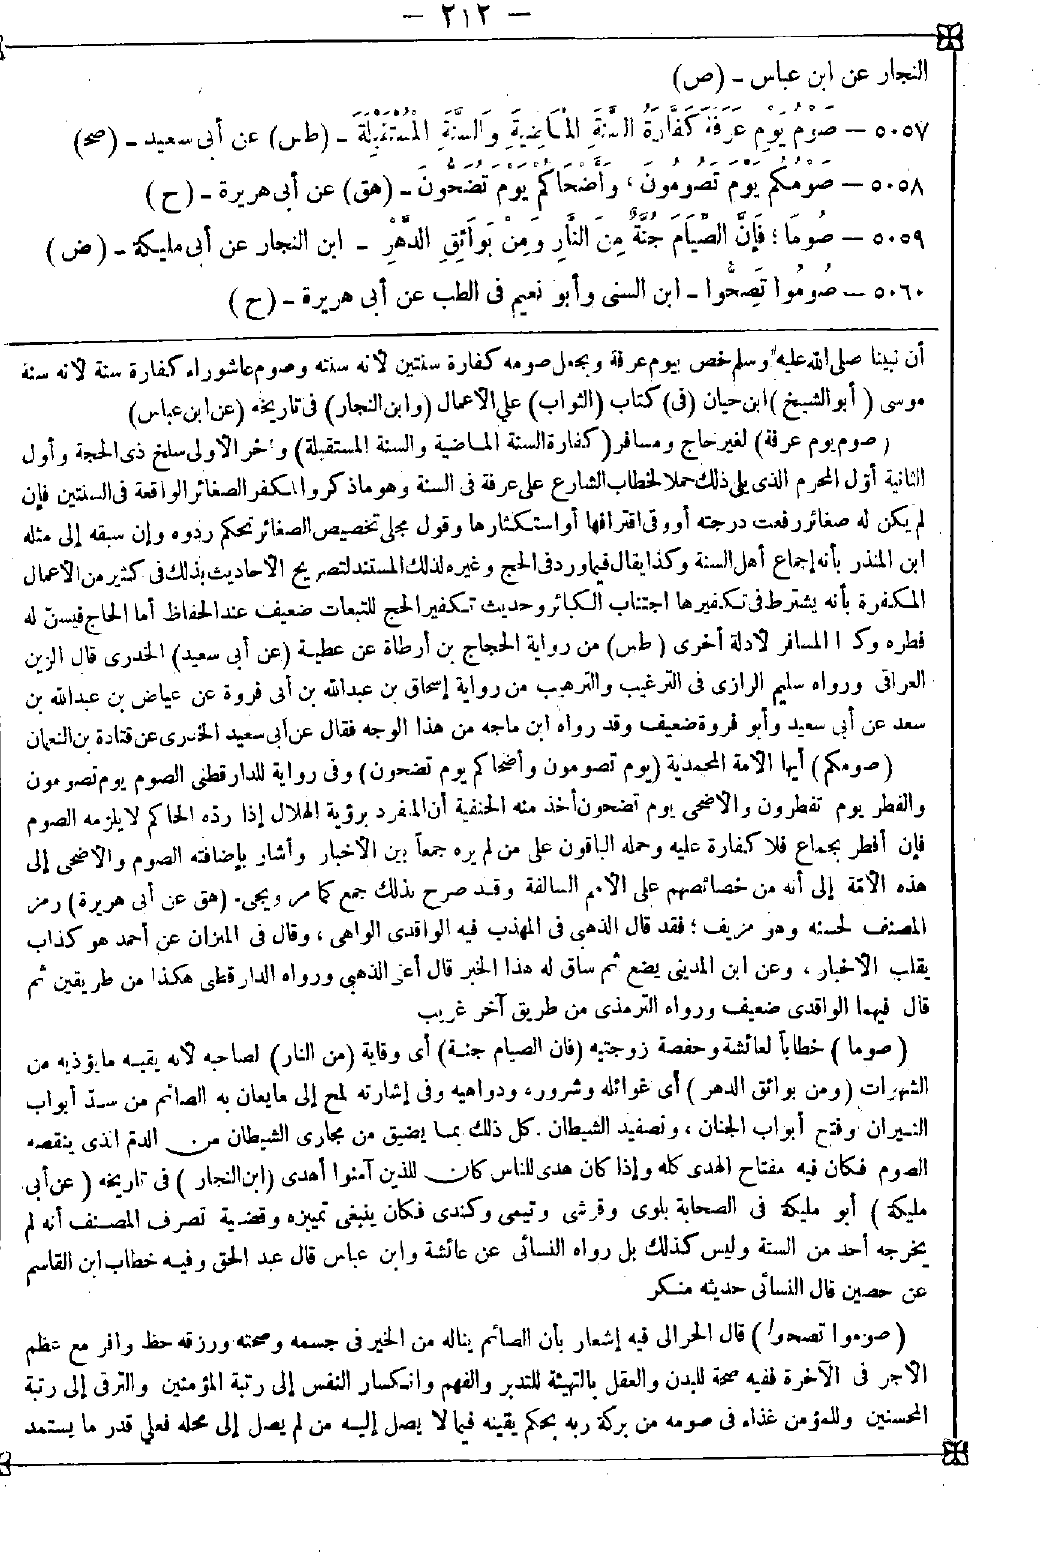 — ٢١٢ —
النجار عن ابن عباس - (ص)
٥٠٥٧ — صَوْمُ يَوْمِ عَرَفَةَ كَفَّارَةُ السَّنَةِ الْمَاضِيَةِ وَالسَّنَةِ الْمُسْتَقْبَلَةِ - (طس) عن أبى سعيد - (صح)
٥٠٥٨ — صَوْمُكُمْ يَوْمَ تَصُومُونَ ، وَأَضْحَاكُمْ يَوْمَ تُضَحُّونَ - (هق) عن أبى هريرة - (ح)
٥٠٥٩ — صُومَا ؛ فَإِنَّ الصِّيَامَ جُنَّةٌ مِنَ النَّارِ وَمِنْ بَوَائِقِ الدَّهْرِ - ابن النجار عن أبى مليكة - (ض)
٥٠٦٠ — صُومُوا تَصِحُّوا - ابن السنى وأبو نعيم فى الطب عن أبى هريرة - (ح)
أن نبينا صلى الله عليه وسلم خص بيوم عرفة ويجعل صومه كفارة سنتين لأنه سنته وصوم عاشوراء كفارة سنة لأنه سنة
موسى (أبو الشيخ) ابن حيان (فى) كتاب (الثواب) على الأعمال (وابن النجار) فى تاريخه (عن ابن عباس)
(صوم يوم عرفة) لغير حاج ومسافر (كفارة السنة الماضية والسنة المستقبلة) وآخر الأولى سلخ ذى الحجة وأول
الثانية أول المحرم الذى يلى ذلك حملا لخطاب الشارع على عرفة فى السنة وهو ما ذكر والمكفر الصغائر الواقعة فى السنتين فإن
لم يكن له صغائر رفعت درجته أو وقى اقترافها أو استكثارها وقول مجلى تخصيص الصغائر تحكم ردوه وإن سبقه إلى مثله
ابن المنذر بأنه إجماع أهل السنة وكذا يقال فيما ورد فى الحج وغيره لذلك المستند لتصريح الأحاديث بذلك فى كثير من الأعمال
المكفرة بأنه يشترط فى تكفيرها اجتناب الكبائر وحديث تكفير الحج للتبعات ضعيف عند الحفاظ أما الحاج فيسن له
فطره وكذا المسافر لأدلة أخرى (طس) من رواية الحجاج بن أرطاة عن عطية (عن أبى سعيد) الخدرى قال الزين
العراقى ورواه سليم الرازى فى الترغيب والترهيب من رواية إسحاق بن عبدالله بن أبى فروة عن عياض بن عبدالله بن
سعد عن أبى سعيد وأبو فروة ضعيف وقد رواه ابن ماجه من هذا الوجه فقال عن أبى سعيد الخدرى عن قتادة بن النعمان
(صومكم) أيها الأمة المحمدية (يوم تصومون وأضحاكم يوم تضحون) وفى رواية للدارقطنى الصوم يوم تصومون
والفطر يوم تفطرون والأضحى يوم تضحون أخذ منه الحنفية أن المفرد برؤية الهلال إذا رده الحاكم لا يلزمه الصوم
فإن أفطر بجماع فلا كفارة عليه وحمله الباقون على من لم يره جمعاً بين الأخبار وأشار بإضافته الصوم والأضحى إلى
هذه الأمة إلى أنه من خصائصهم على الأمم السالفة وقد صرح بذلك جمع كما مر ويجىء (هق عن أبى هريرة) رمز
المصنف لحسنه وهو مزيف ؛ فقد قال الذهبى فى المهذب فيه الواقدى الواهى ، وقال فى الميزان عن أحمد هو كذاب
يقلب الأخبار ، وعن ابن المدينى يضع ثم ساق له هذا الخبر قال أعنى الذهبى ورواه الدارقطنى هكذا من طريقين ثم
قال فيهما الواقدى ضعيف ورواه الترمذى من طريق آخر غريب
(صوما) خطاباً لعائشة وحفصة زوجتيه (فان الصيام جنة) أى وقاية (من النار) لصاحبه لأنه يقيه ما يؤذيه من
الشهوات (ومن بوائق الدهر) أى غوائله وشرور، ودواهيه وفى إشارته لمح إلى ما يعان به الصائم من سد أبواب
النيران وفتح أبواب الجنان ، وتصفيد الشيطان . كل ذلك بما يضيق من مجارى الشيطان من الدم الذى ينقصه
الصوم فكان فيه مفتاح الهدى كله وإذا كان هدى للناس كان للذين آمنوا أهدى (ابن النجار) فى تاريخه (عن أبى
مليكة) أبو مليكة فى الصحابة بلوى وقرشى وتيمى وكندى فكان ينبغى تمييزه وقضية تصرف المصنف أنه لم
يخرجه أحد من الستة وليس كذلك بل رواه النسائى عن عائشة وابن عباس قال عبد الحق وفيه خطاب ابن القاسم
عن حصين قال النسائى حديثه منكر
(صوموا تصحوا) قال الحرالى فيه إشعار بأن الصائم يناله من الخير فى جسمه وصحته ورزقه حظ وافر مع عظم
الأجر فى الآخرة ففيه صحة للبدن والعقل بالتهيئة للتدبر والفهم وانكسار النفس إلى رتبة المؤمنين والترقى إلى رتبة
المحسنين وللمؤمن غذاء فى صومه من بركة ربه بحكم يقينه فيما لا يصل إليه من لم يصل إلى محله فعلى قدر ما يستمد